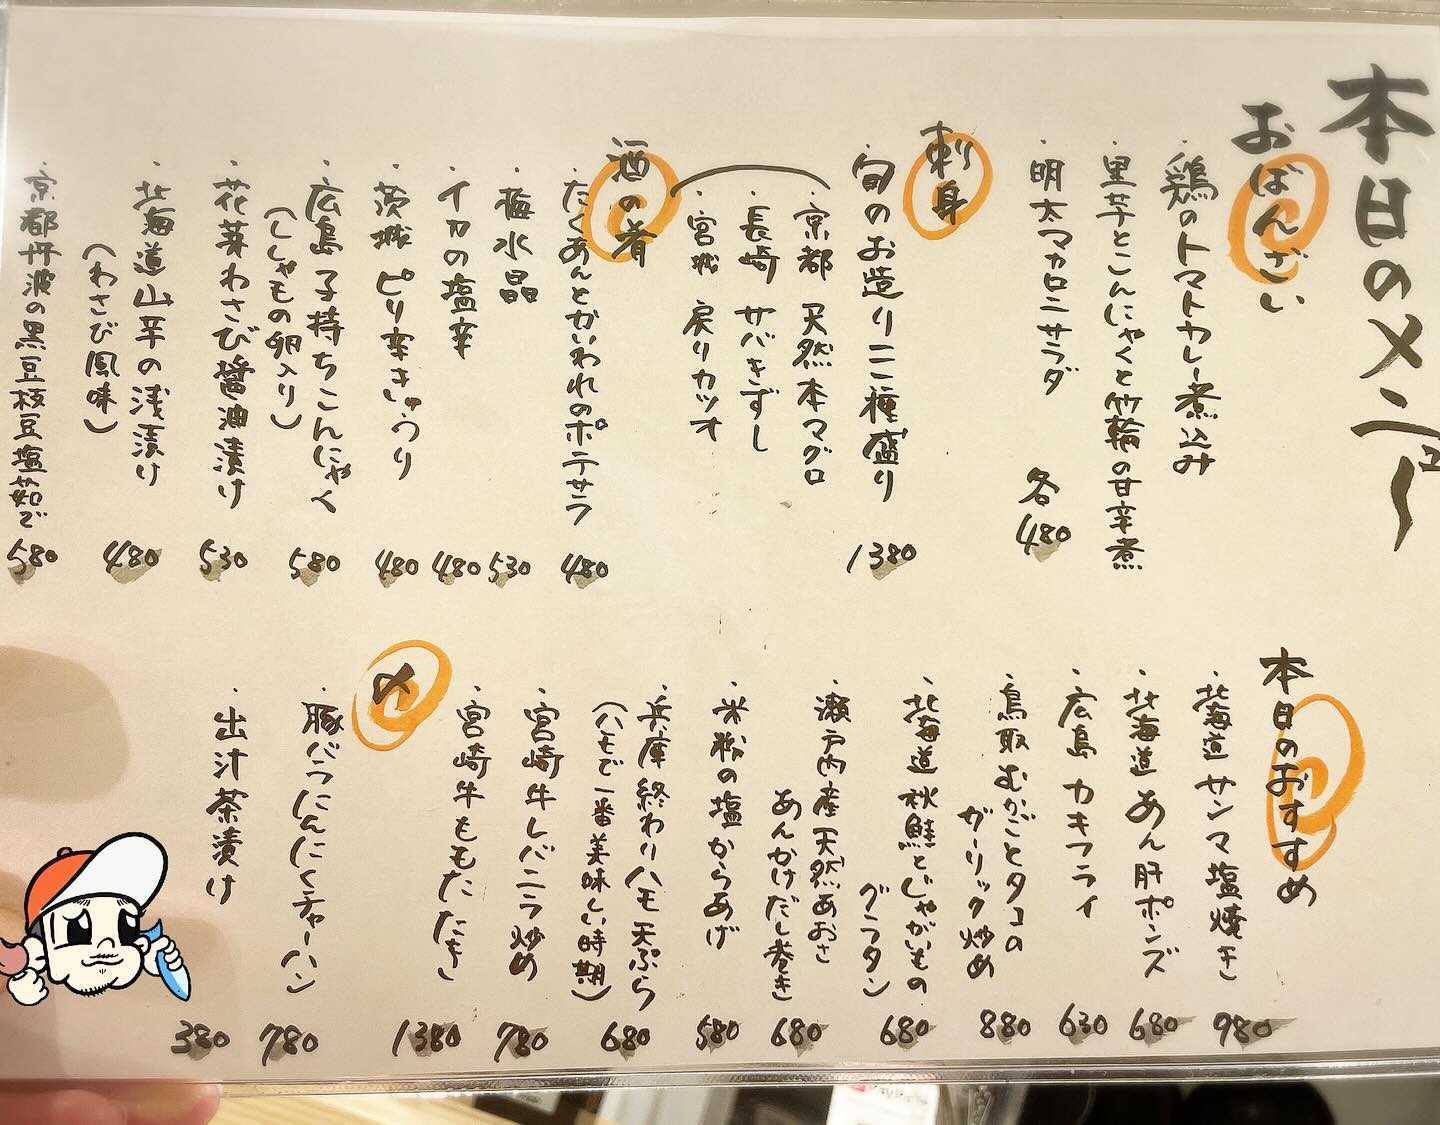 本日のメニュー
おばんざい
・鶏のトマトカレー煮込み
・里芋とこんにゃくと竹輪の甘辛煮
・明太マカロニサラダ
各480
刺身
旬のお造り三種盛り 1380
・京都 天然本マグロ
・長崎 サバきずし
・宮城 戻りカツオ
酒の肴
・たくあんとかいわれのポテサラ 480
・梅水晶 530
・イカの塩辛 480
・茨城 ピリ辛きゅうり 480
・広島 子持ちこんにゃく
(ししゃもの卵入り) 580
・花芽わさび醤油漬け 530
・北海道山芋の浅漬け
(わさび風味) 480
・京都丹波の黒豆枝豆塩茹で 580
本日のおすすめ
・北海道 サンマ塩焼き 980
・北海道 あん肝ポンズ 680
・広島 カキフライ 630
・鳥取 むかごとタコの
ガーリック炒め 880
・北海道 秋鮭とじゃがいもの
グラタン 680
・瀬戸内産 天然あおさ
あんかけだし巻き 680
・米粉の塩からあげ 580
・兵庫 終わりハモ天ぷら
(ハモで一番美味しい時期) 680
・宮崎牛レバニラ炒め 780
・宮崎牛ももたたき 1380
〆
・豚バラにんにくチャーハン 780
・出汁茶漬け 380